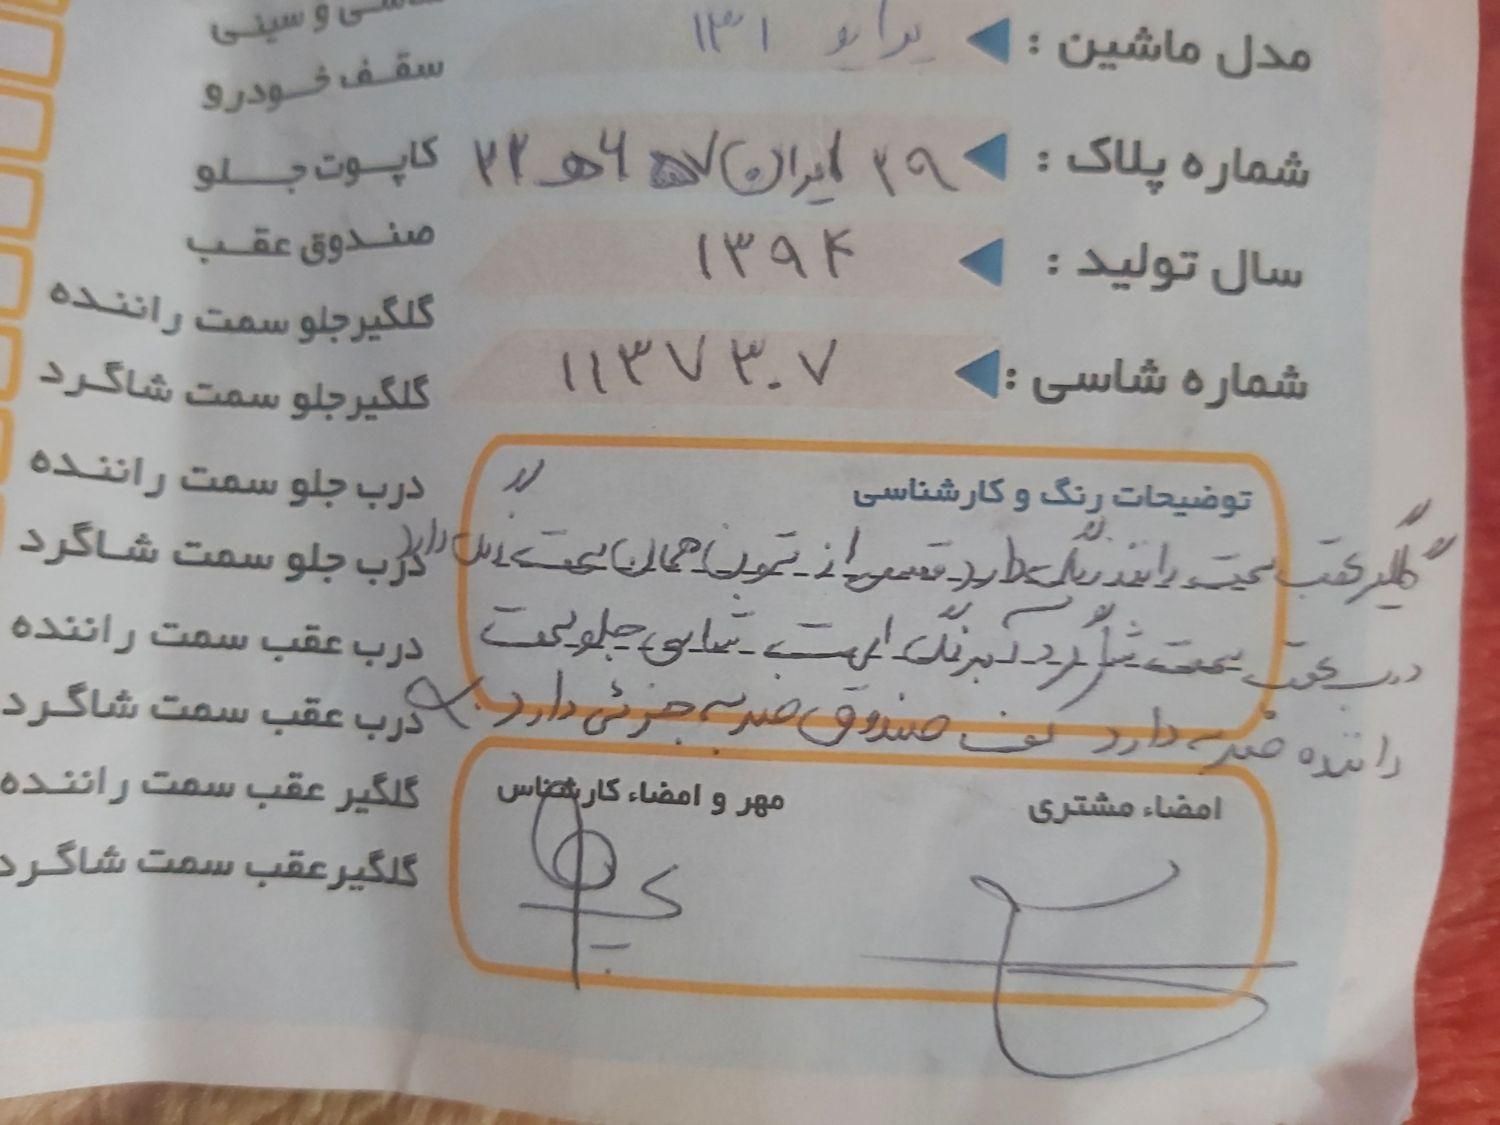 مدل ماشین : پراید ۱۳۱
شماره پلاک : ایران
سال تولید : ۱۳۹۴
شماره شاسی : ۱۱۳۷۳۰۷
توضیحات رنگ و کارشناسی
گلگیر عقب سمت راننده رنگ دارد قسمتی از ستون همان سمت رنگ دارد
درب عقب سمت شاگرد آبرنگ است شاسی جلو سمت
راننده ضربه دارد کف صندوق ضربه جزئی دارد
امضاء مشتری
مهر و امضاء کارشناس
و سینی
سقف خودرو
کاپوت جلو
صندوق عقب
گلگیر جلو سمت راننده
گلگیر جلو سمت شاگرد
درب جلو سمت راننده
درب جلو سمت شاگرد
درب عقب سمت راننده
درب عقب سمت شاگرد
گلگیر عقب سمت راننده
گلگیر عقب سمت شاگرد